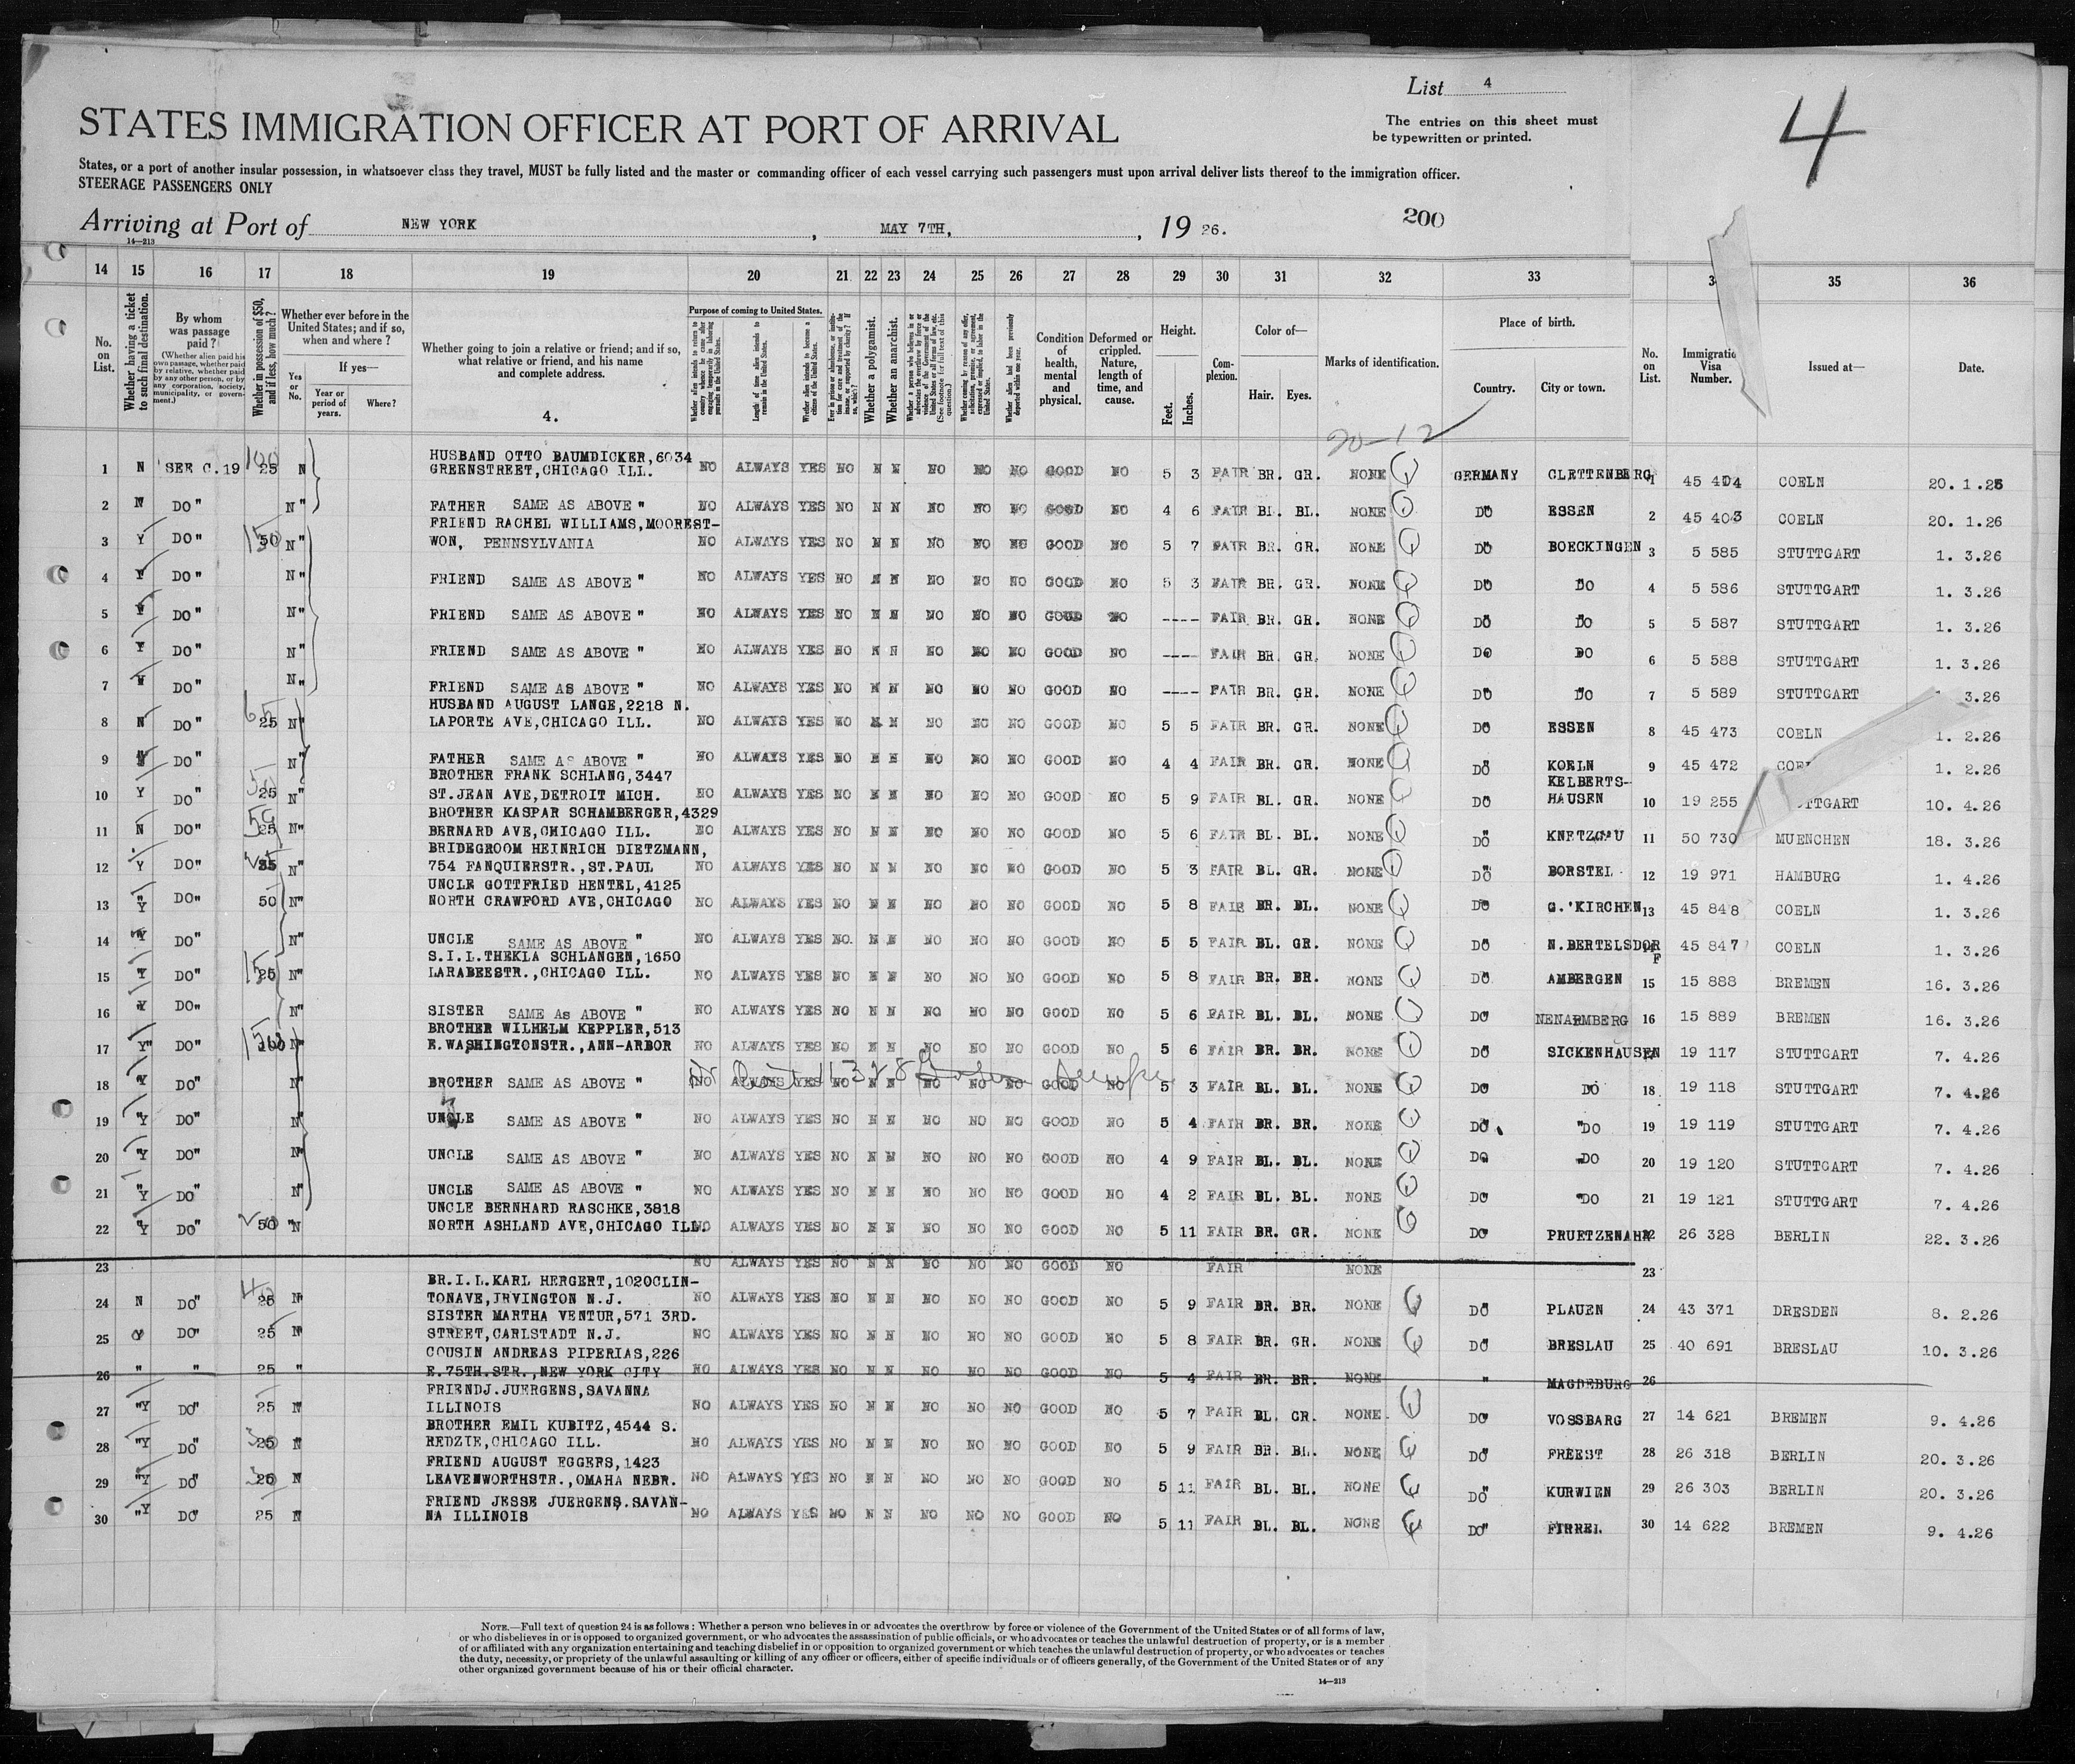 List 4
The entries on this sheet must
be typewritten or printed.
4
STATES IMMIGRATION OFFICER AT PORT OF ARRIVAL
States, or a port of another insular possession, in whatsoever class they travel, MUST be fully listed and the master or commanding officer of each vessel carrying such passengers must upon arrival deliver lists thereof to the immigration officer.
STEERAGE PASSENGERS ONLY
Arriving at Port of NEW YORK , MAY 7TH, , 19 26. 200
14—213
14 15 16 17 18 19 20 21 22 23 24 25 26 27 28 29 30 31 32 33 35 36
No. on List.
Whether having a ticket to such final destination.
By whom was passage paid?
(Whether alien paid his own passage, whether paid by relative, whether paid by any other person, or by any corporation, society, municipality, or government.)
Whether in possession of $50, and if less, how much?
Whether ever before in the United States; and if so, when and where?
Yes or No.
If yes—
Year or period of years.
Where?
Whether going to join a relative or friend; and if so, what relative or friend, and his name and complete address.
4.
Purpose of coming to United States.
Whether alien intends to return to country whence he came after engaging temporarily in laboring pursuits in the United States.
Length of time alien intends to remain in the United States.
Whether alien intends to become a citizen of the United States.
Whether a polygamist.
Whether an anarchist.
Condition of health, mental and physical.
Deformed or crippled. Nature, length of time, and cause.
Height.
Feet. Inches.
Complexion.
Color of—
Hair. Eyes.
Marks of identification.
Place of birth.
Country. City or town.
No. on List.
Immigration Visa Number.
Issued at—
Date.
20-12
HUSBAND OTTO BAUMDICKER,6034
1 N SEE C.19 100 25 N GREENSTREET,CHICAGO ILL. NO ALWAYS YES NO N N NO NO NO GOOD NO 5 3 FAIR BR. GR. NONE GERMANY CLETTENBERG 1 45 404 COELN 20. 1.26
2 N DO" N" FATHER SAME AS ABOVE " NO ALWAYS YES NO N N NO NO NO GOOD NO 4 6 FAIR BL. BL. NONE DO ESSEN 2 45 403 COELN 20. 1.26
FRIEND RACHEL WILLIAMS,MOOREST-
3 Y DO" 150 50 N" WON, PENNSYLVANIA NO ALWAYS YES NO N N NO NO NO GOOD NO 5 7 FAIR BR. GR. NONE DO" BOECKINGEN 3 5 585 STUTTGART 1. 3.26
4 Y DO" N" FRIEND SAME AS ABOVE " NO ALWAYS YES NO N N NO NO NO GOOD NO 5 3 FAIR BR. GR. NONE DO" DO 4 5 586 STUTTGART 1. 3.26
5 Y DO" N" FRIEND SAME AS ABOVE " NO ALWAYS YES NO N N NO NO NO GOOD NO ---- FAIR BR. GR. NONE DO" DO 5 5 587 STUTTGART 1. 3.26
6 Y DO" N" FRIEND SAME AS ABOVE " NO ALWAYS YES NO N N NO NO NO GOOD NO ---- FAIR BR. GR. NONE DO DO 6 5 588 STUTTGART 1. 3.26
7 Y DO" N" FRIEND SAME AS ABOVE " NO ALWAYS YES NO N N NO NO NO GOOD NO ---- FAIR BR. GR. NONE DO" DO 7 5 589 STUTTGART 3.26
HUSBAND AUGUST LANGE,2218 N.
8 N DO" 65 25 N" LAPORTE AVE,CHICAGO ILL. NO ALWAYS YES NO N N NO NO NO GOOD NO 5 5 FAIR BR. GR. NONE DO" ESSEN 8 45 473 COELN 1. 2.26
9 N DO" N" FATHER SAME AS ABOVE " NO ALWAYS YES NO N N NO NO NO GOOD NO 4 4 FAIR BR. GR. NONE DO" KOELN 9 45 472 1. 2.26
BROTHER FRANK SCHLANG,3447 KELBERTS-
10 Y DO" 25 N" ST.JEAN AVE,DETROIT MICH. NO ALWAYS YES NO N N NO NO NO GOOD NO 5 9 FAIR BL. GR. NONE DO" HAUSEN 10 19 255 10. 4.26
BROTHER KASPAR SCHAMBERGER,4329
11 N DO" 50 25 N" BERNARD AVE,CHICAGO ILL. NO ALWAYS YES NO N N NO NO NO GOOD NO 5 6 FAIR BL. BL. NONE DO" KNETZGAU 11 50 730 MUENCHEN 18. 3.26
BRIDEGROOM HEINRICH DIETZMANN,
12 Y DO" N" 754 FANQUIERSTR.,ST.PAUL NO ALWAYS YES NO N N NO NO NO GOOD NO 5 3 FAIR BL. GR. NONE DO" BORSTEL 12 19 971 HAMBURG 1. 4.26
UNCLE GOTTFRIED HENTEL,4125
13 Y DO" 50 N" NORTH CRAWFORD AVE,CHICAGO NO ALWAYS YES NO N N NO NO NO GOOD NO 5 8 FAIR BR. BL. NONE DO" G.'KIRCHEN 13 45 848 COELN 1. 3.26
14 Y DO" N" UNCLE SAME AS ABOVE " NO ALWAYS YES NO. N N NO NO NO GOOD NO 5 5 FAIR BL. GR. NONE DO" N.BERTELSDORF 14 45 847 COELN 1. 3.26
S.I.L.THEKLA SCHLANGEN,1650
15 Y DO" 25 N" LARABEESTR.,CHICAGO ILL. NO ALWAYS YES NO N N NO NO NO GOOD NO 5 8 FAIR BR. BR. NONE DO" AMBERGEN 15 15 888 BREMEN 16. 3.26
16 Y DO" N" SISTER SAME As ABOVE " NO ALWAYS YES NO N N NO NO NO GOOD NO 5 6 FAIR BL. BL. NONE DO" NENARMBERG 16 15 889 BREMEN 16. 3.26
BROTHER WILHELM KEPPLER,513
17 Y" DO" N" E.WASHINGTONSTR.,ANN-ARBOR NO ALWAYS YES NO N N NO NO NO GOOD NO 5 6 FAIR BR. BR. NONE DO" SICKENHAUSEN 17 19 117 STUTTGART 7. 4.26
18 Y DO" N" BROTHER SAME AS ABOVE " NO ALWAYS YES NO N N NO NO NO GOOD NO 5 3 FAIR BL. BL. NONE DO DO 18 19 118 STUTTGART 7. 4.26
19 "Y DO" N" UNCLE SAME AS ABOVE " NO ALWAYS YES NO N N NO NO NO GOOD NO 5 4 FAIR BR. BR. NONE DO" "DO 19 19 119 STUTTGART 7. 4.26
20 "Y DO" N" UNCLE SAME AS ABOVE " NO ALWAYS YES NO N N NO NO NO GOOD NO 4 9 FAIR BL. BL. NONE DO "DO 20 19 120 STUTTGART 7. 4.26
21 "Y DO" N" UNCLE SAME AS ABOVE " NO ALWAYS YES NO N N NO NO NO GOOD NO 4 2 FAIR BL. BL. NONE DO" "DO 21 19 121 STUTTGART 7. 4.26
UNCLE BERNHARD RASCHKE,3818
22 "Y DO" 50 "N NORTH ASHLAND AVE,CHICAGO ILL. NO ALWAYS YES NO N N NO NO NO GOOD NO 5 11 FAIR BR. GR. NONE DO" PRUETZENAHR 22 26 328 BERLIN 22. 3.26
23 NO ALWAYS YES NO N N NO NO NO GOOD NO FAIR NONE 23
BR.I.L.KARL HERGERT,1020CLIN-
24 N DO" 40 25 N" TONAVE,IRVINGTON N.J. NO ALWAYS YES NO N N NO NO NO GOOD NO 5 9 FAIR BR. BR. NONE DO" PLAUEN 24 43 371 DRESDEN 8. 2.26
SISTER MARTHA VENTUR,571 3RD.
25 Y DO" 25 N" STREET,CARLSTADT N.J. NO ALWAYS YES NO N N NO NO NO GOOD NO 5 8 FAIR BR. GR. NONE DO" BRESLAU 25 40 691 BRESLAU 10. 3.26
COUSIN ANDREAS PIPERIAS,226
26 " " 25 " E.75TH.STR.,NEW YORK CITY NO ALWAYS YES NO N N NO NO NO GOOD NO 5 4 FAIR BR. BR. NONE " MAGDEBURG 26
FRIENDJ.JUERGENS,SAVANNA
27 "Y DO" 25 N ILLINOIS NO ALWAYS YES NO N N NO NO NO GOOD NO 5 7 FAIR BL. GR. NONE DO" VOSSBARG 27 14 621 BREMEN 9. 4.26
BROTHER EMIL KUBITZ,4544 S.
28 "Y DO" 30 25 N REDZIE,CHICAGO ILL. NO ALWAYS YES NO N N NO NO NO GOOD NO 5 9 FAIR BR. BL. NONE DO" FREEST 28 26 318 BERLIN 20. 3.26
FRIEND AUGUST EGGERS,1423
29 "Y DO" 30 25 N LEAVENWORTHSTR.,OMAHA NEBR. NO ALWAYS YES NO N N NO NO NO GOOD NO 5 11 FAIR BL. BL. NONE DO" KURWIEN 29 26 303 BERLIN 20. 3.26
FRIEND JESSE JUERGENS.SAVAN-
30 "Y DO" 25 N NA ILLINOIS NO ALWAYS YES NO N N NO NO NO GOOD NO 5 11 FAIR BL. BL. NONE DO" FIRREL 30 14 622 BREMEN 9. 4.26
NOTE.—Full text of question 24 is as follows: Whether a person who believes in or advocates the overthrow by force or violence of the Government of the United States or of all forms of law,
or who disbelieves in or is opposed to organized government, or who advocates the assassination of public officials, or who advocates or teaches the unlawful destruction of property, or is a member
of or affiliated with any organization entertaining and teaching disbelief in or opposition to organized government or which teaches the unlawful destruction of property, or who advocates or teaches
the duty, necessity, or propriety of the unlawful assaulting or killing of any officer or officers, either of specific individuals or of officers generally, of the Government of the United States or of any
other organized government because of his or their official character.
14—213